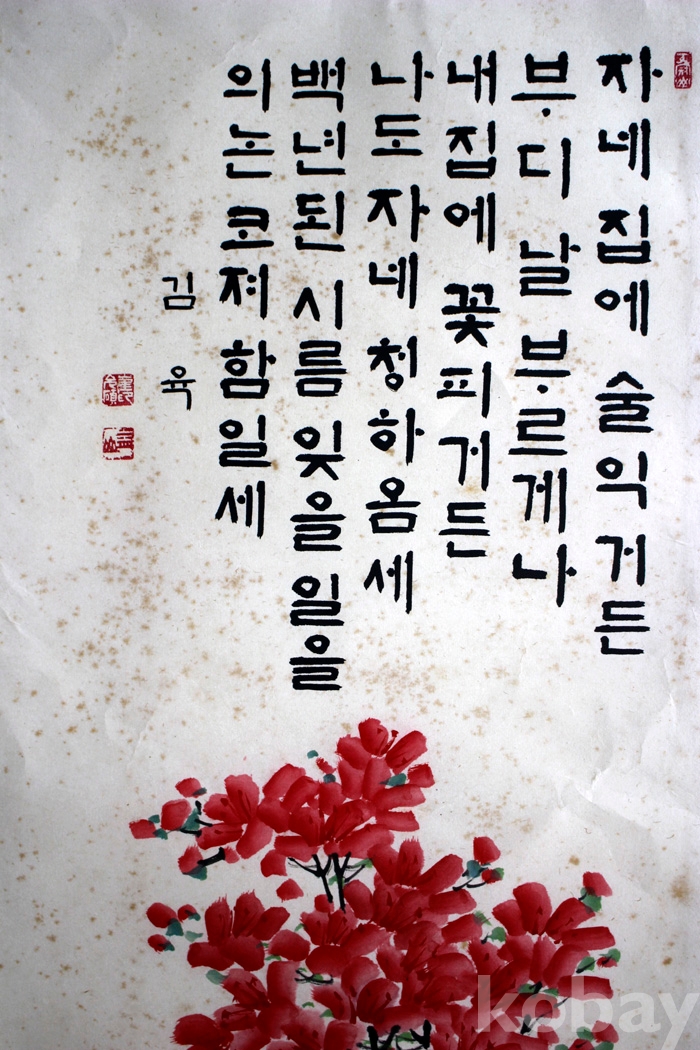 자네 집에 술 익거든
부디 날 부르게나
내 집에 꽃 피거든
나도 자네 청하옴세
백년된 시름 잊을 일을
의논코져 함일세
김육
kobay